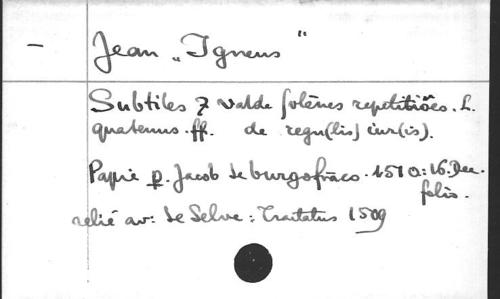 – Jean „Igneus“
Subtiles ⁊ valde solēnes repetitiōes . L.
quatenus . ff. de regu(lis) iur(is).
Papie p. Jacob de burgofrāco . 1510: 16. Dec.
folio.
relié av: de Selve: Tractatus 1509